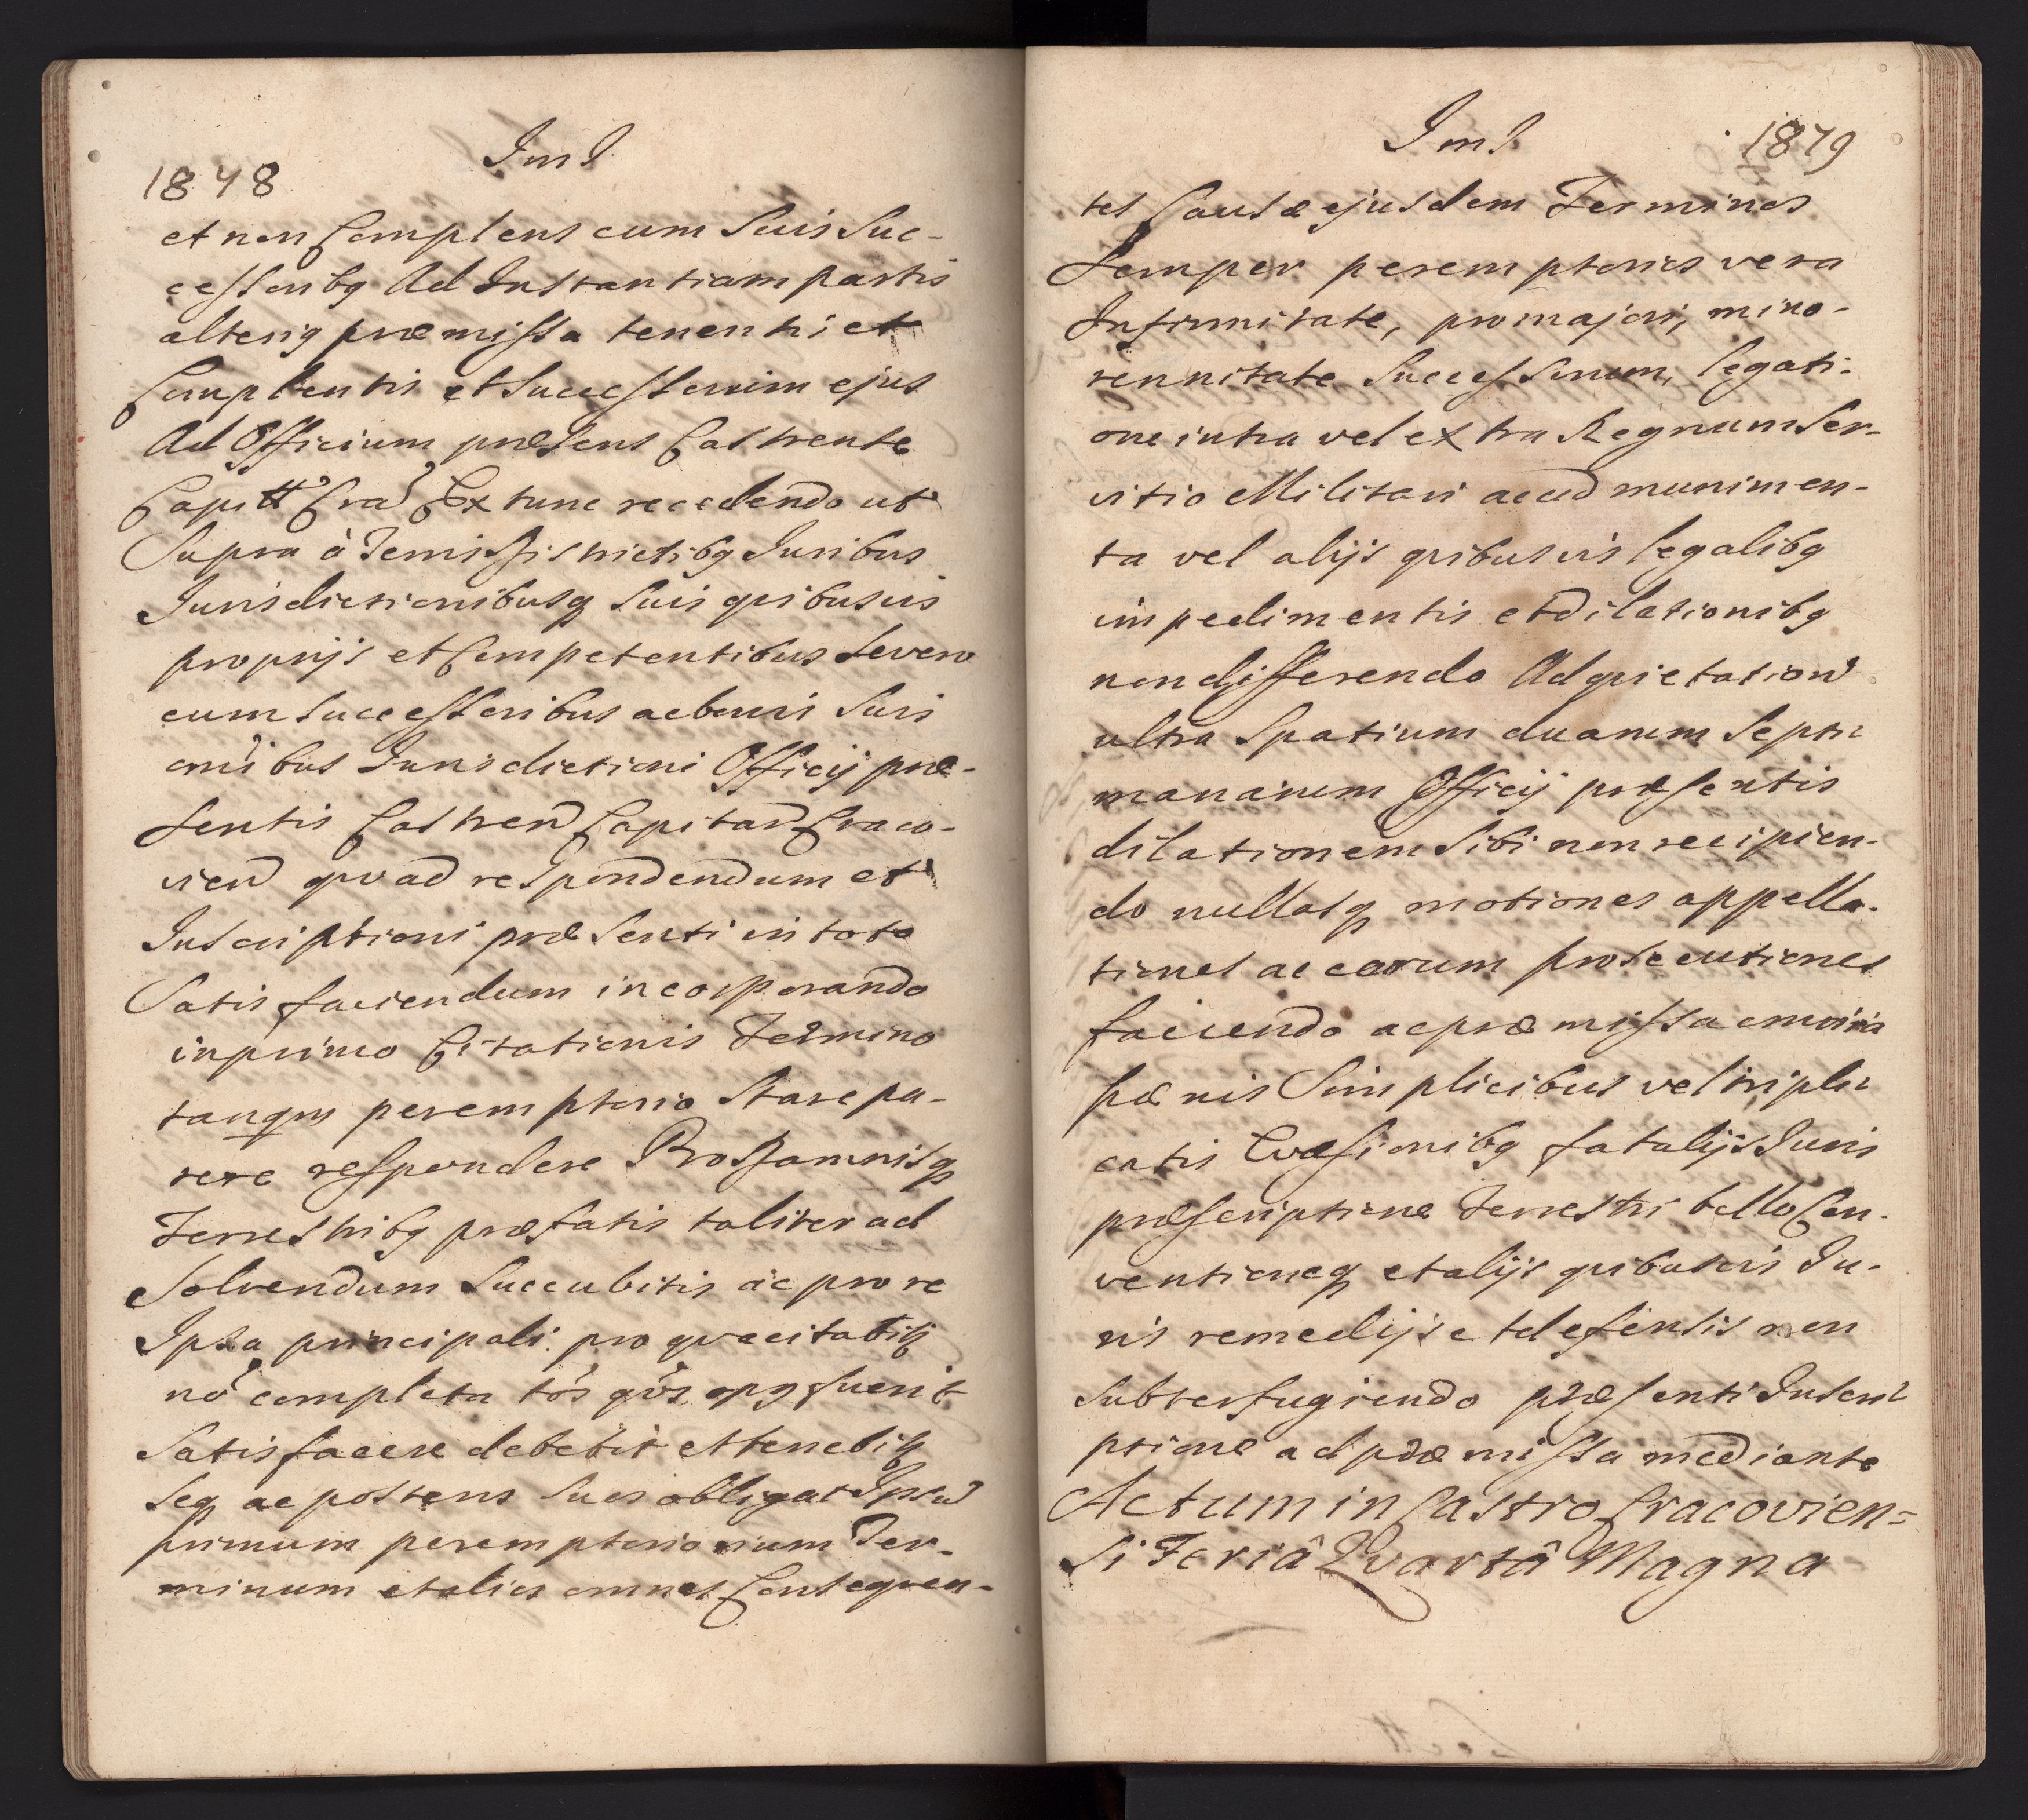 1848
Im I
et non Complens cum Suis Suc-
cessoribq Ad Instantiam partis
alteriq præmissa tenentis et
Complentis et Successorum ejus
Ad Officium præsens Castrense
Capitt Cra Ex tunc recedendo ut
Supra à Terris Districtibq Juribus
Jurisdictionibusq Suis qvibusvis
proprijs et Competentibus Severo
cum Successoribus ac bonis Suis
omibus Jurisdictioni Officij præ-
sentis Castren Capitan Craco-
vien qvoad respondendum et
Inscriptioni præsenti in toto
Satisfaciendum incorporando
in primo Citationis Termino
tanqm peremptorio Stare pa-
rere respondere
Terrestribq præfatis taliter ad
Solvendum Succubitis ac pro re
Ipsa principali pro qva citabitq
nō completa tōs qōs opq fuerit
Satisfacere debebit et tenebitq
Seq ac posteros Suos obligat Ipsu
primum peremptoriorum Ter-
minum et alios omnes Conseqven-
Im I.
1879
tes Causæ ejusdem Terminos
Semper peremptorios vera
Infirmitate, pro majori, mino-
rennitate Successorum, legati-
one intra vel extra Regnum Ser-
vitio Militari ac ad munimen-
ta vel alijs qvibusvis legalibq
impedimentis et dilationibq
non differendo Ad qvietation
ultra Spatium duarum Septi
manarum Officij præsentis
dilationem Sibi non recipien-
do nullasq motiones appella-
tiones ac earum prosecutiones
faciendo ac præmissa omnia
pænis Simplicibus vel tripli
catis Evasionibq fatalijs Juris
præscriptione Terrestri bello Con-
ventioneq et alijs qvibusvis Ju-
ris remedijs et defensis non
Subterfugiendo præsenti Inscri
ptione ad præmissa mediante
Actum in Castro Cracovien=
si Feriâ Qvartâ Magna